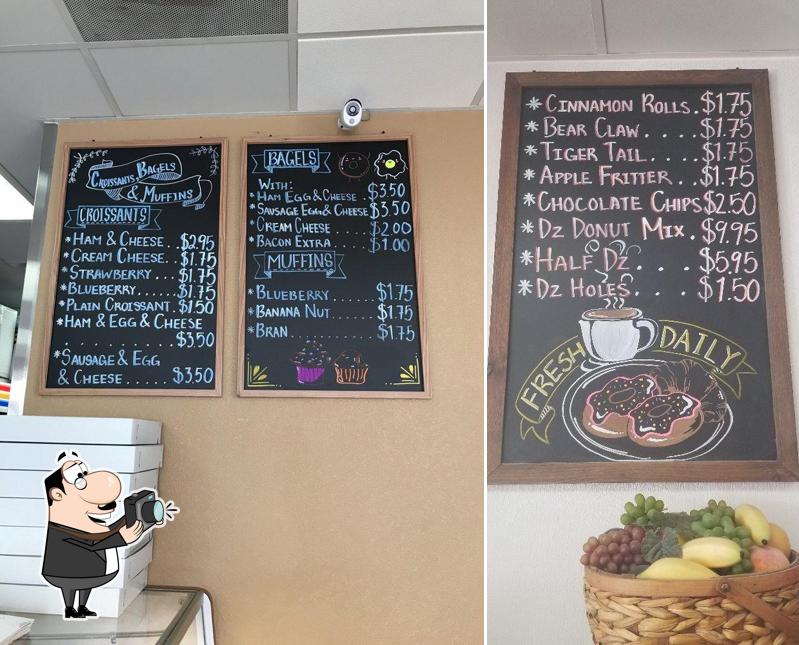 Croissants, Bagels
& Muffins
Croissants
* Ham & Cheese . . $2.95
* Cream Cheese . . $1.75
* Strawberry . . . $1.75
* Blueberry . . . . $1.75
* Plain Croissant . $1.50
* Ham & Egg & Cheese
. . . . . . . . . . $3.50
* Sausage & Egg
& Cheese . . . . . . $3.50
Bagels
With:
* Ham Egg & Cheese . $3.50
* Sausage Egg & Cheese $3.50
* Cream Cheese . . . . $2.00
* Bacon Extra . . . . . $1.00
Muffins
* Blueberry . . . . . . $1.75
* Banana Nut . . . . . $1.75
* Bran . . . . . . . . . $1.75
* Cinnamon Rolls . $1.75
* Bear Claw . . . . $1.75
* Tiger Tail . . . . $1.75
* Apple Fritter . . $1.75
* Chocolate Chips $2.50
* Dz Donut Mix . $9.95
* Half Dz . . . . $5.95
* Dz Holes . . . $1.50
Fresh Daily